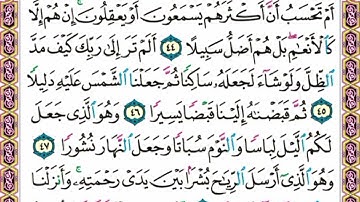 أَمْ تَحْسَبُ أَنَّ أَكْثَرَهُمْ يَسْمَعُونَ أَوْ يَعْقِلُونَ ۚ إِنْ هُمْ إِلَّا
كَالْأَنْعَٰمِ ۖ بَلْ هُمْ أَضَلُّ سَبِيلًا ٤٤ أَلَمْ تَرَ إِلَىٰ رَبِّكَ كَيْفَ مَدَّ
الظِّلَّ وَلَوْ شَآءَ لَجَعَلَهُۥ سَاكِنًا ثُمَّ جَعَلْنَا الشَّمْسَ عَلَيْهِ دَلِيلًا
٤٥ ثُمَّ قَبَضْنَٰهُ إِلَيْنَا قَبْضًا يَسِيرًا ٤٦ وَهُوَ الَّذِى جَعَلَ
لَكُمُ الَّيْلَ لِبَاسًا وَالنَّوْمَ سُبَاتًا وَجَعَلَ النَّهَارَ نُشُورًا ٤٧
وَهُوَ الَّذِىٓ أَرْسَلَ الرِّيَٰحَ بُشْرًۢا بَيْنَ يَدَىْ رَحْمَتِهِۦ ۚ وَأَنزَلْنَا